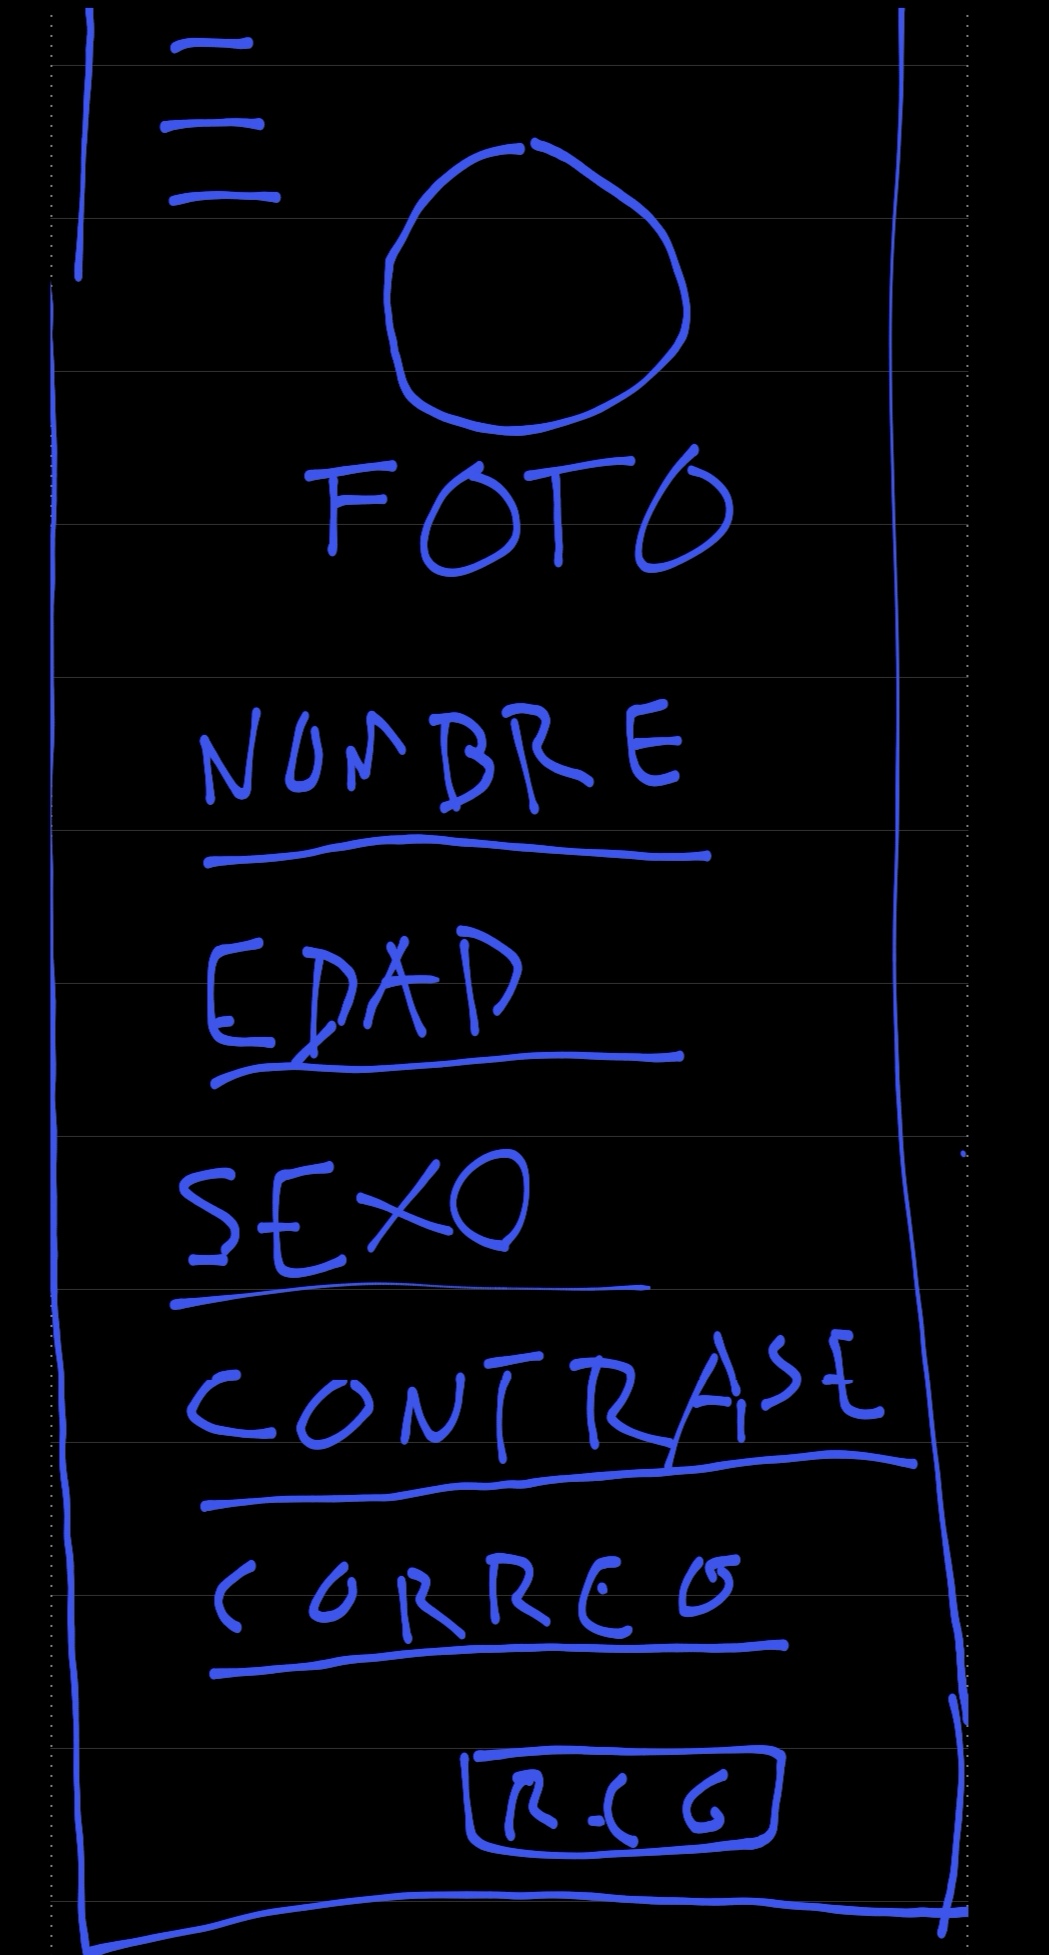 FOTO
NOMBRE
EDAD
SEXO
CONTRASE
CORREO
REG